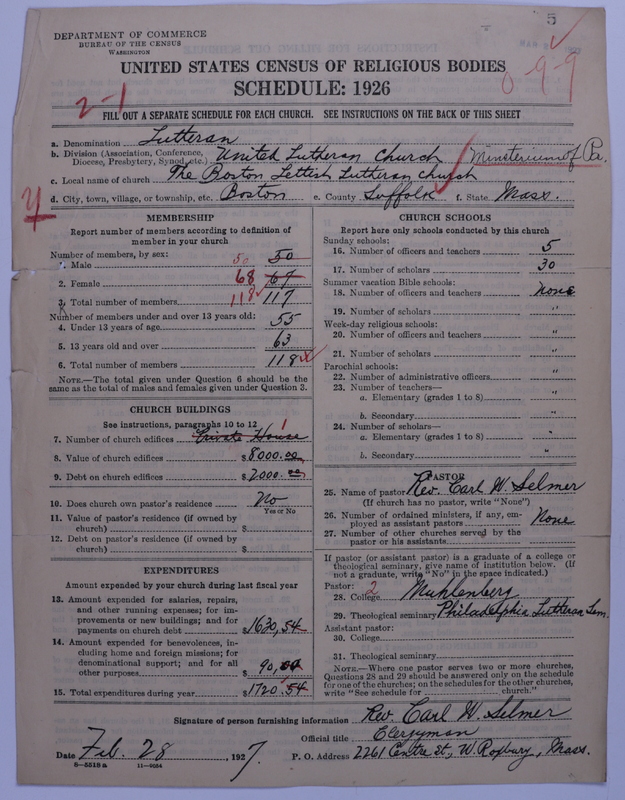 5
DEPARTMENT OF COMMERCE
BUREAU OF THE CENSUS
WASHINGTON
UNITED STATES CENSUS OF RELIGIOUS BODIES
0-9-9
SCHEDULE: 1926
2-1
FILL OUT A SEPARATE SCHEDULE FOR EACH CHURCH. SEE INSTRUCTIONS ON THE BACK OF THIS SHEET
a. Denomination Lutheran
b. Division (Association, Conference, Diocese, Presbytery, Synod, etc.) United Lutheran Church Ministerium of Pa.
c. Local name of church The Boston Lettish Lutheran Church
d. City, town, village, or township, etc. Boston e. County Suffolk f. State Mass.
MEMBERSHIP
Report number of members according to definition of
member in your church
Number of members, by sex:
1. Male 50 50
2. Female 68 67
3. Total number of members 118 117
Number of members under and over 13 years old:
4. Under 13 years of age 55
5. 13 years old and over 63
6. Total number of members 118
NOTE.—The total given under Question 6 should be the
same as the total of males and females given under Question 3.
CHURCH BUILDINGS
See instructions, paragraphs 10 to 12
7. Number of church edifices Private House 1
8. Value of church edifices $8000.00
9. Debt on church edifices $2000.00
10. Does church own pastor's residence No
Yes or No
11. Value of pastor's residence (if owned by
church) $
12. Debt on pastor's residence (if owned by
church) $
EXPENDITURES
Amount expended by your church during last fiscal year
13. Amount expended for salaries, repairs,
and other running expenses; for im-
provements or new buildings; and for
payments on church debt $1630,54
14. Amount expended for benevolences, in-
cluding home and foreign missions; for
denominational support; and for all
other purposes $90,00
15. Total expenditures during year $1720.54
CHURCH SCHOOLS
Report here only schools conducted by this church
Sunday schools:
16. Number of officers and teachers 5
17. Number of scholars 30
Summer vacation Bible schools:
18. Number of officers and teachers none
19. Number of scholars "
Week-day religious schools:
20. Number of officers and teachers "
21. Number of scholars "
Parochial schools:
22. Number of administrative officers "
23. Number of teachers—
a. Elementary (grades 1 to 8) "
b. Secondary "
24. Number of scholars—
a. Elementary (grades 1 to 8) "
b. Secondary "
PASTOR
25. Name of pastor Rev. Carl W. Selmer
(If church has no pastor, write "None")
26. Number of ordained ministers, if any, em-
ployed as assistant pastors None
27. Number of other churches served by the
pastor or his assistants
If pastor (or assistant pastor) is a graduate of a college or
theological seminary, give name of institution below. (If
not a graduate, write "No" in the space indicated.)
Pastor: 2
28. College Muhlenberg
29. Theological seminary Philadelphia Lutheran Sem.
Assistant pastor:
30. College
31. Theological seminary
NOTE.—Where one pastor serves two or more churches,
Questions 28 and 29 should be answered only on the schedule
for one of the churches; on the schedules for the other churches,
write "See schedule for church."
Signature of person furnishing information Rev. Carl W. Selmer
Official title Clergyman
Date Feb. 28, 1927. P. O. Address 2261 Centre St., W. Roxbury, Mass.
8-5518a 11-9054